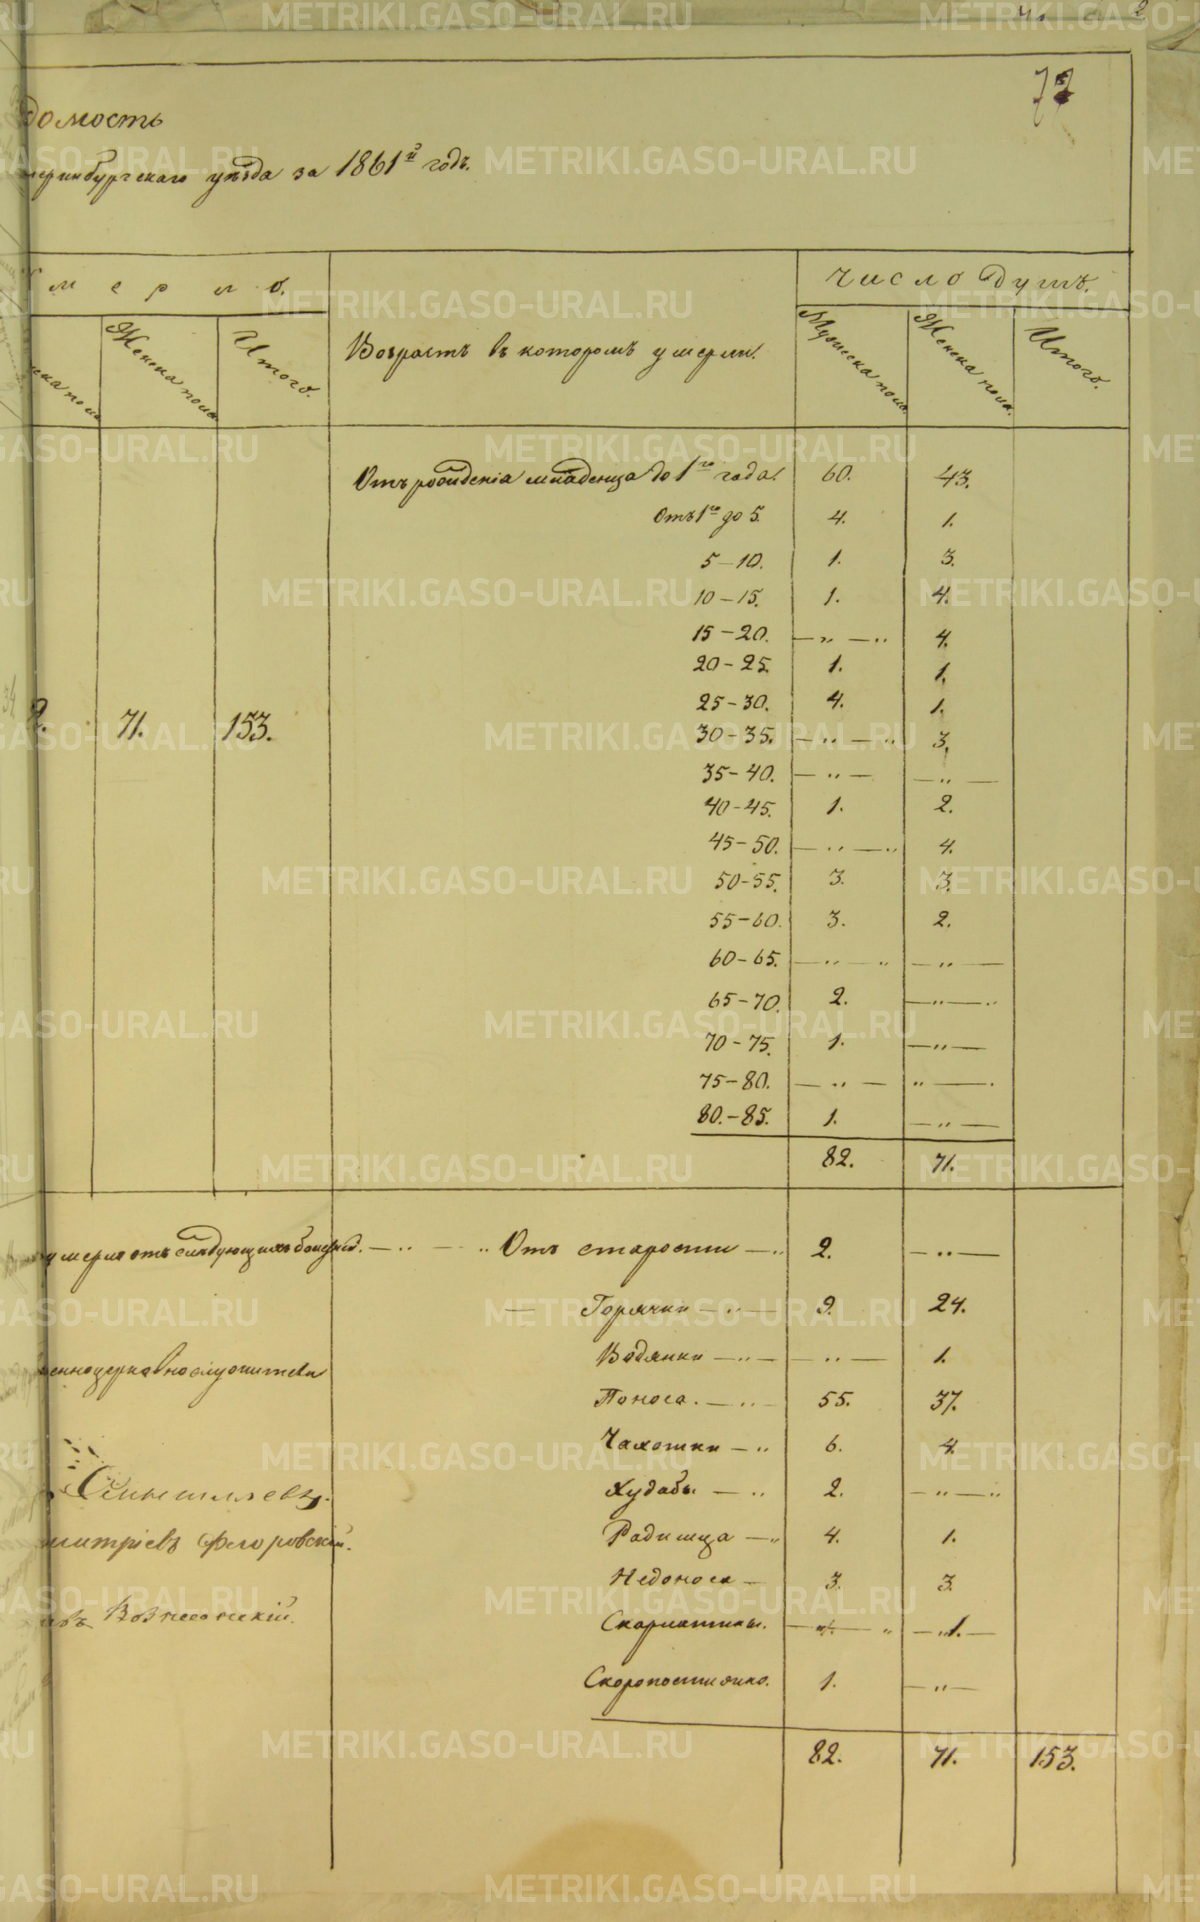 77
домость
теринбургскаго уѣзда за 1861й годъ.
мерло.
Женска пола
Итого.
Возрастъ въ которомъ умерли.
Число Душъ.
Мужеска пола.
Женска пола.
Итого.
Отъ рожденія младенца до 1го года. 60. 43.
Отъ 1го до 5. 4. 1.
5-10. 1. 3.
10-15. 1. 4.
15-20. — „ — „ 4.
20-25. 1. 1.
2. 71. 153. 25-30. 4. 1.
30-35. — „ — „ 3.
35-40. — „ — — „ —
40-45. 1. 2.
45-50. — „ — „ 4.
50-55. 3. 3.
55-60. 3. 2.
60-65. — „ — „ — „ —
65-70. 2. — „ — „
70-75. 1. — „ —
75-80. — „ — „ — .
80.-85. 1. — „ —
82. 71.
умерло отъ слѣдующихъ болѣзней. — „ — „ Отъ старости — „ 2. — „ —
— Горячки — „ — 9. 24.
Водянки — „ — — „ — 1.
еннноцерковнослужители
Поноса. — „ — 55. 37.
Чахотки — „ 6. 4.
Худобы. — „ 2. — „ — „
Родимца — „ 4. 1.
митріевъ Флоровскій.
Недоноса — 3. 3.
въ Вознесенскій.
Скарлатины. — „ — „ — „ 1. —
Скоропостижно. 1. — „ —
82. 71. 153.
METRIKI.GASO-URAL.RU